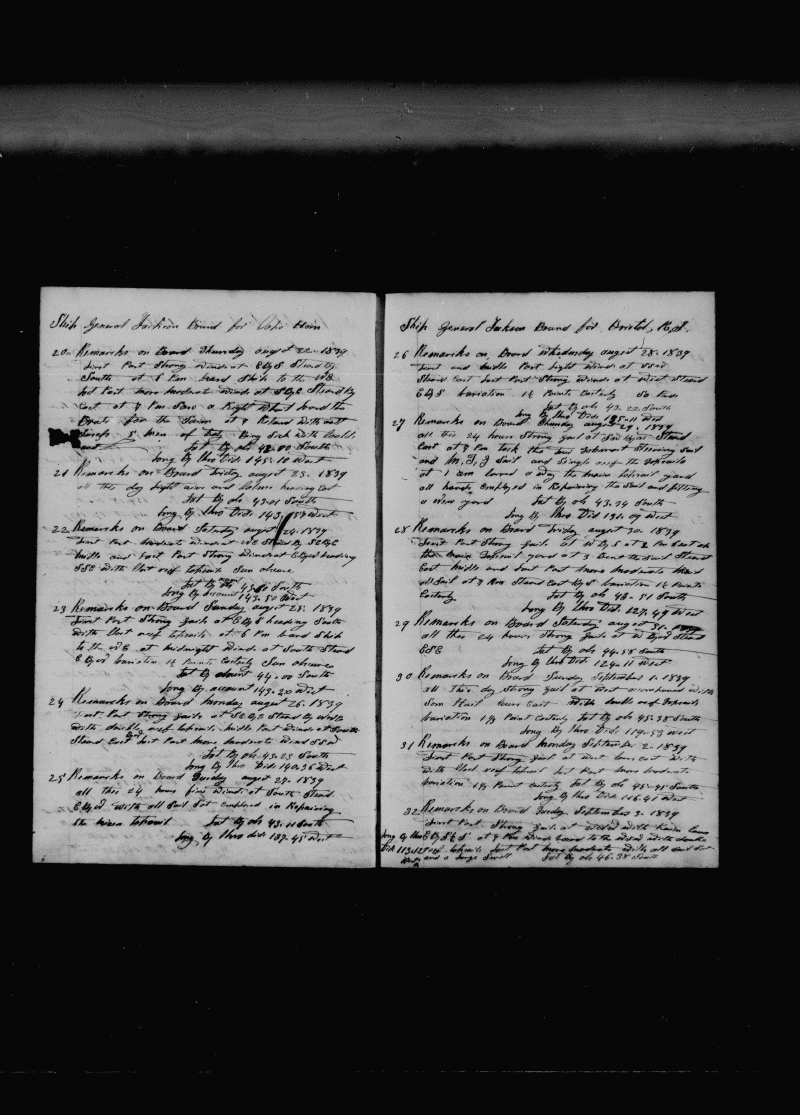 Ship General Jackson Bound for Cape Horn
20 Remarks on Board Thursday august 22. 1839
first Part Strong winds at EbyS Steard by
South at 5 Pm ward Ship to the NE
last Part more moderate winds at SEbyE Steard by
East at 7 Pm Saw a Right Whale lowerd the
Boats for the at 9 Returnd without
Success 5 men of Duty Being Sick with
and Lat By ob 42.00 South
Long By Chro Did 145.10 West
21 Remarks on Board Friday august 23. 1839
all this day light airs and Calms heading East
Lat By ob 43.01 South
Long By Chro Did. 143.57 West
22 Remarks on Board Saturday august 24. 1839
first Part moderate winds at NE Steard By SEbyE
midle and last Part Strong winds at heading
SSE with Clost reef topsails Sun obscure
Lat By ob 43.50 South
Long By account 143.50 West
23 Remarks on Board Sunday august 25. 1839
first Part Strong gails at EbyS heading South
with Clost reef topsails at 6 Pm ward Ship
to the NE at midnight winds at South Steard
variation 1½ Points Easterly Sun obscure
Lat By account 44.00 South
Long By account 143.20 West
24 Remarks on Board monday august 26. 1839
first Part Strong gails at SEbyE Steard By
with double reef topsails midle Part winds at South
Steard East last Part more moderate wind SSW
Lat By ob 43.23 South
Long By Chro Did. 140.36 West
25 Remarks on Board Tuesday august 27. 1839
all this 24 hours fine winds at South Steard
with all Sail Set employed in Repairing
the mizen topsail Lat By ob 43.11 South
Long By Chro did. 137.45 West
Ship General Jackson Bound for Bristol, R, I.
26 Remarks on Board Wednesday august 28. 1839
first and midle Part light winds at SSW
Steard East last Part Strong winds at West Steard
EbyS variation 1½ Points Easterly
Lat By ob 43.22 South
Long By Chro Did. 135.11 West
27 Remarks on Board Thursday august 29. 1839
all this 24 hours Strong gail at Steard
East at 9 Pm took the Steering Sail
and M, T, G Sail and Single reef the topsails
at 1 am Carred a way the main topsail yard
all hands employed in Repairing the Sail and fitting
a new yard Lat By ob 43.34 South
Long By Chro Did 131.09 West
28 Remarks on Board Friday august 30. 1839
first Part Strong gails at WbyS at 2 Pm Sent up
the main topsail yard at 3 bent the Sail Steard
East midle and last Part more moderate made
all Sail at 9 Pm Steard EastbyS variation 1½ Points
Easterly Lat By ob 43.51 South
Long By Chro Did. 127.49 West
29 Remarks on Board Saturday august 31. 1839
all this 24 hours Strong gails at Steard
ESE Lat By ob 44.58 South
Long By Chro Did. 124.11 West
30 Remarks on Board Sunday September 1. 1839
all this day Strong gail at West with
Som Hail East with double reef topsails
variation 1½ Point Easterly Lat By ob 45.38 South
Long By Chro Did. 119.53 West
31 Remarks on Board monday September 2. 1839
first Part Strong gail at West East with
with Clost reef topsail last Part more moderate
variation 1½ Point Easterly Lat By ob 45.31 South
Long By Chro Did 116.41 West
32 Remarks on Board Tuesday September 3. 1839
first Part Strong gails at with
Long By Chro EbySbS at 9 Pm winds to the West with double
Did 113.12 reef topsails last Part more moderate with all Sail Set
West and a large Swell Lat By ob 46.38 South